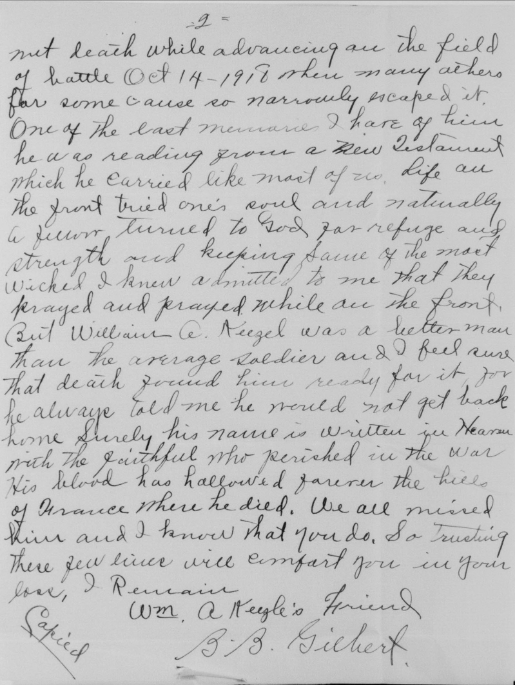 - 2 =
met death while advancing on the field
of battle Oct 14-1918 when many others
for some cause so narrowly escaped it.
One of the last memories I have of him
he was reading from a New Testament
which he carried like most of us. Life on
the front tried one's soul and naturally
a fellow turned to God for refuge and
strength and keeping Some of the most
wicked I knew admitted to me that they
prayed and prayed while on the front.
But William A. Keezel was a better man
than the average soldier and I feel sure
that death found him ready for it, for
he always told me he would not get back
home Surely his name is written in Heaven
with the faithful who perished in the war
His blood has hallowed forever the hills
of France where he died. We all missed
him and I know that you do. So trusting
these few lines will comfort you in your
loss, I Remain
Wm. A Keezle's Friend
B. B. Gilbert.
Copied